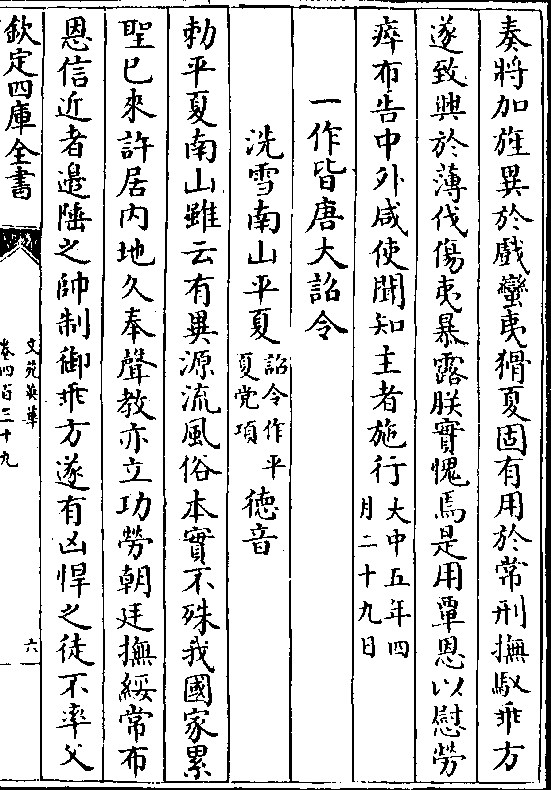 奏將加旌異於戲蠻夷猾夏固有用於常刑撫馭乖方
遂致興於薄伐傷夷暴露朕實愧焉是用覃恩以慰勞
瘁布告中外咸使聞知主者施行大中五年四月二十九日
一作皆唐大詔令
洗雪南山平夏詔令作平夏党項德音
勅平夏南山雖云有異源流風俗本實不殊我國家累
聖已來許居内地久奉聲教亦立功勞朝廷撫綏常布
恩信近者邉陲之帥制御乖方遂有凶悍之徒不率父
欽定四庫全書
文苑英華
卷四百三十九
六